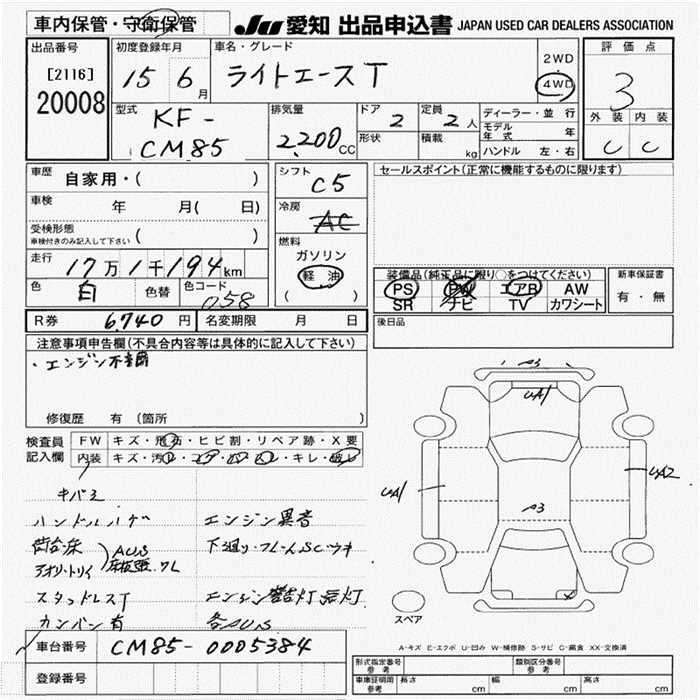 車内保管・守衛保管
JU 愛知 出品申込書 JAPAN USED CAR DEALERS ASSOCIATION
出品番号
[2116]
20008
初度登録年月
15 6月
車名・グレード
ライトエースT
2WD
4WD
評価点
3
外装 内装
C C
型式
KF-
CM85
排気量
2,200CC
ドア 2
形状
定員 2人
積載 kg
ディーラー・並行
モデル年式 年
ハンドル 左・右
車歴 自家用・( )
車検 年 月( 日)
受検形態
車検付きのみ記入して下さい ( )
走行 17万1千194km
色 白 色替 色コード 058
シフト C5
冷房 AC
燃料
ガソリン
軽油
( )
セールスポイント(正常に機能するものに限ります)
装備品(純正品に限り○をつけてください)
PS PW エアB AW
SR ナビ TV カワシート
新車保証書
有・無
R券 6,740円 名変期限 月 日
後日品
注意事項申告欄(不具合内容等は具体的に記入して下さい)
・エンジン不調
修復歴 有 (箇所 )
検査員記入欄
FW キズ・飛石・ヒビ割・リペア跡・X要
内装 キズ・汚レ・コゲ・穴・ヌレ・キレ・破レ
キバミ
ハンドルハゲ エンジン異音
荷台床 AUS 下廻り・フレームSCウキ
アオリ・トリイ 床板張、ワレ
スタッドレスT エンジン警告灯点灯
カンバン有 各AUS
A3
UA1
UA1
UA2
A3
スペア
A-キズ E-エクボ U-凹み W-補修跡 S-サビ C-腐食 XX-交換済
車台番号 CM85-0005384
登録番号
形式指定番号 参考
類別区分番号 参考
車庫証明用 参考 長さ cm 幅 cm 高さ cm